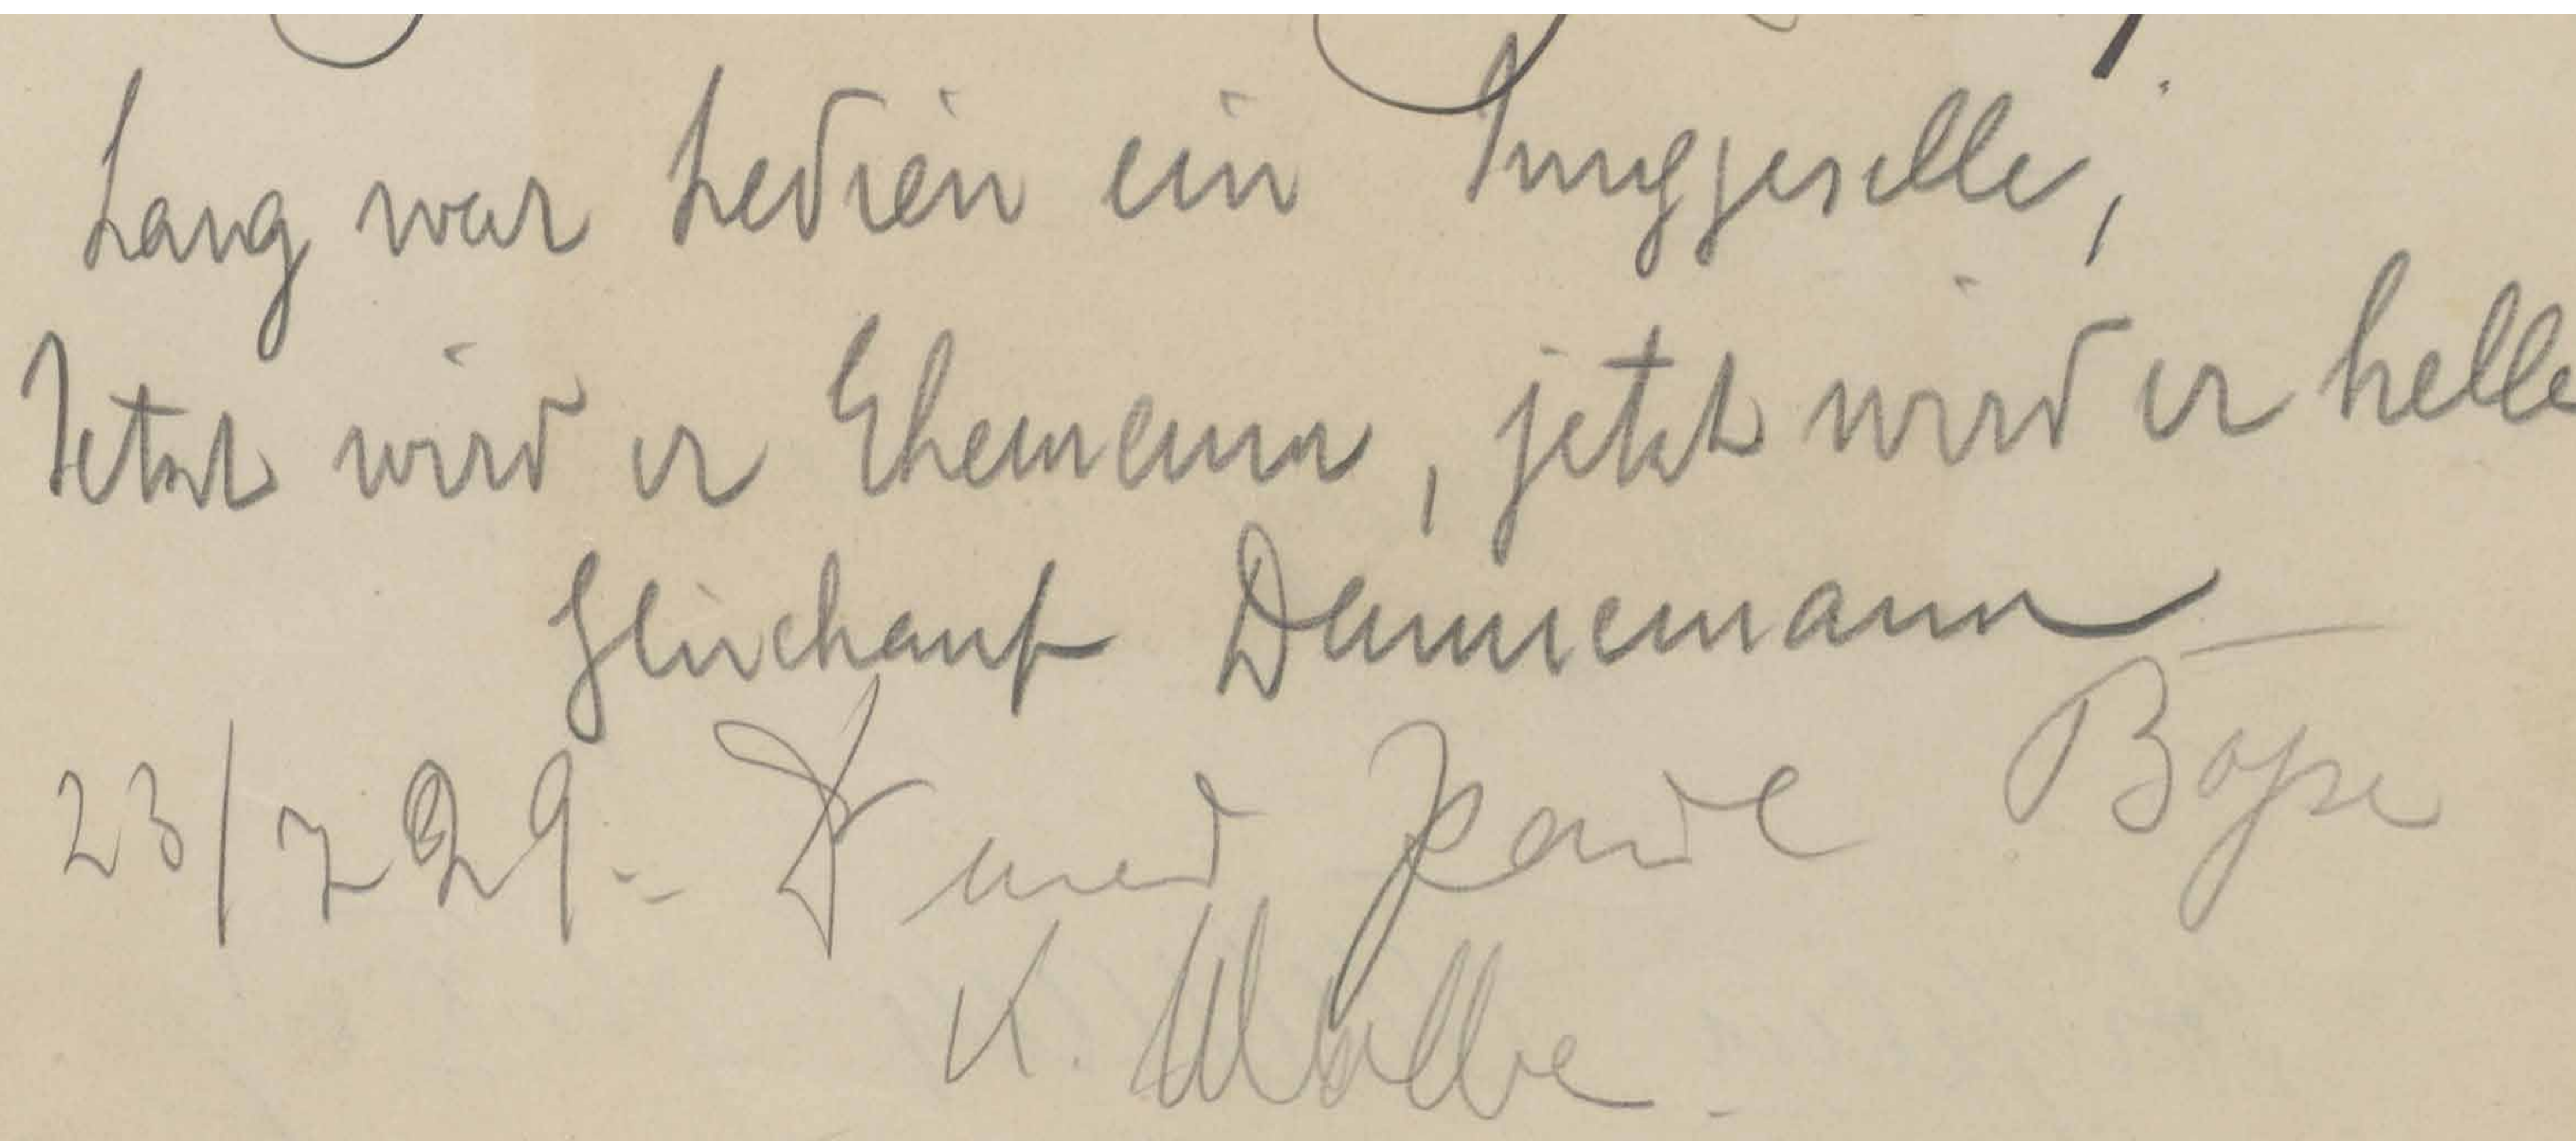 Lang war Ledien ein Junggeselle,
Jetzt wird er Ehemann, jetzt wird er helle
Glückauf Dannemann
23/7 29. Dr med
K.